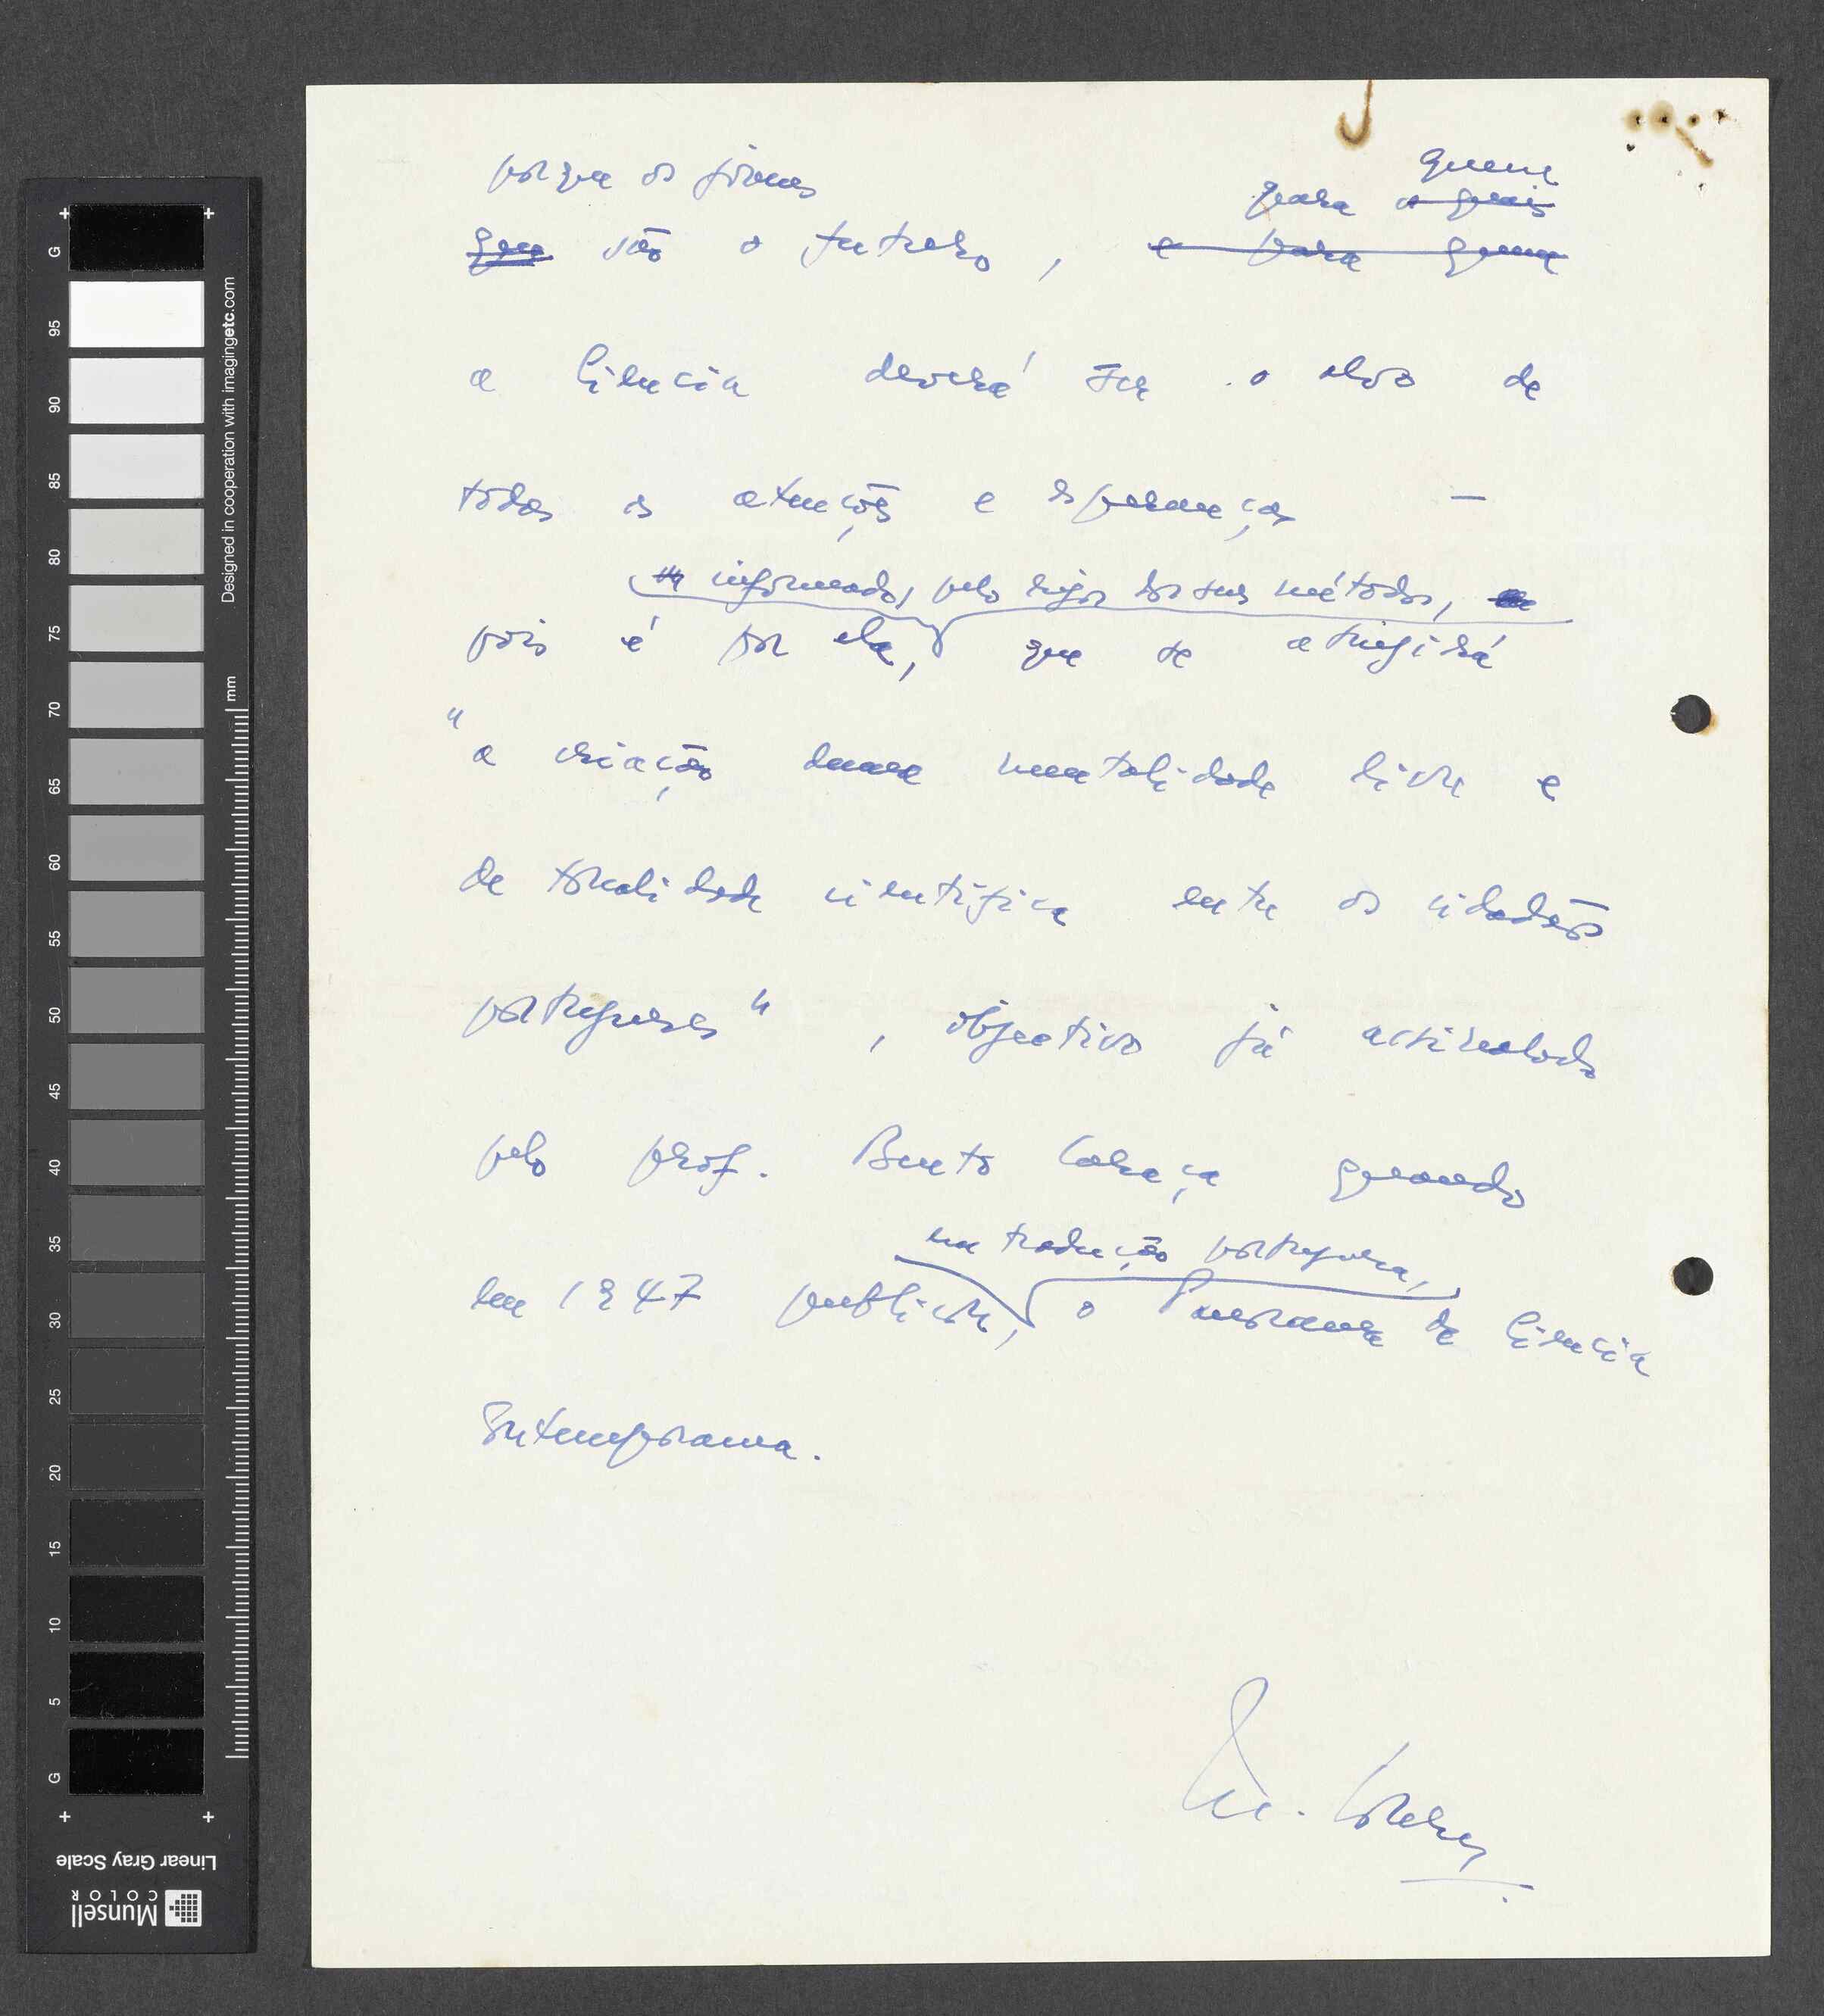 porque os jovens
quem
para os quais
que são o futuro, e para quem
a Ciência deverá ser o alvo de
todas as atenções e esperanças —
informados, pelo rigor dos seus métodos,
pois é por ela, que se atingirá
"a criação duma mentalidade livre e
de tonalidade científica entre os cidadãos
portugueses", objectivo já assinalado
pelo prof. Bento Caraça quando
em tradução portuguesa,
em 1947 publicou, o Panorama da Ciência
Contemporanea.
G
95
90
85
80
75
70
65
60
55
50
45
40
35
30
25
20
15
10
5
G
mm
Designed in cooperation with imagingetc.com
Linear Gray Scale
Munsell
COLOR